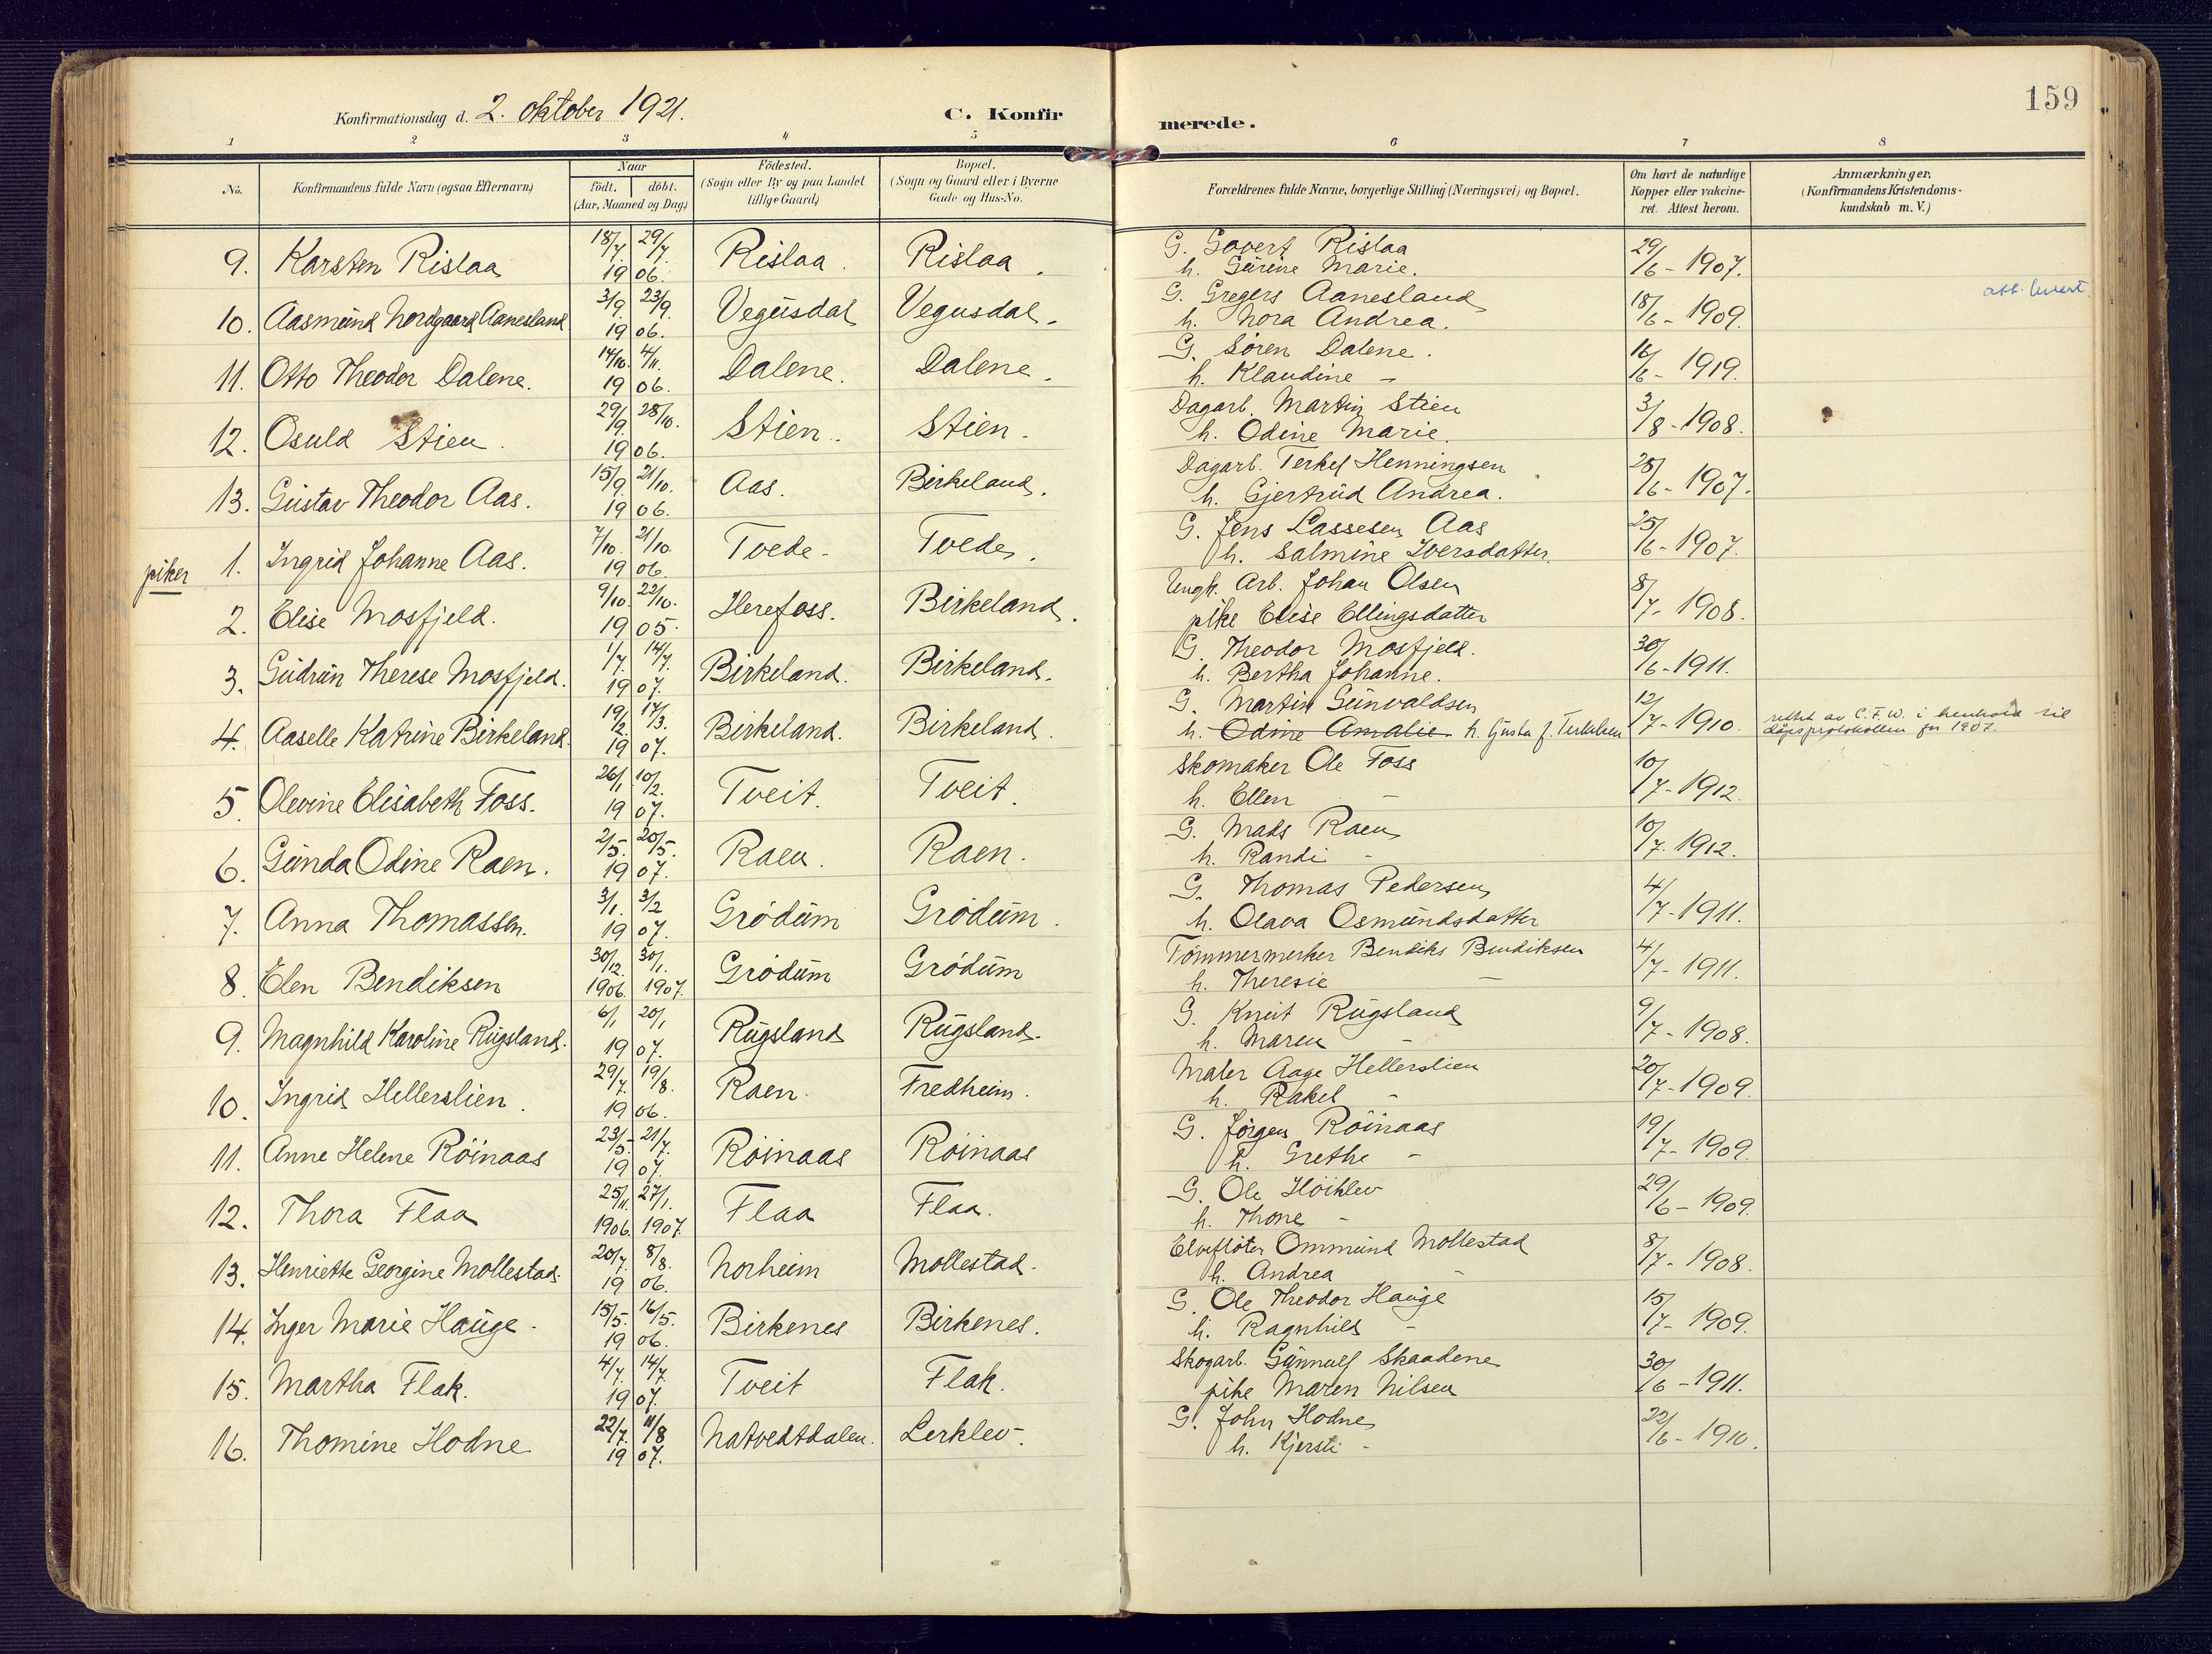 159
Konfirmationsdag d. 2. oktober 1921.
C. Konfirmerede.
1 2 3 4 5 6 7 8
No.
Konfirmandens fulde Navn (ogsaa Efternavn)
Naar
födt. döbt.
(Aar, Maaned og Dag)
Födested.
(Sogn eller By og paa Landet
tillige Gaard)
Bopæl.
(Sogn og Gaard eller i Byerne
Gade og Hus-No.
Forældrenes fulde Navne, borgerlige Stilling (Næringsvei) og Bopæl.
Om havt de naturlige
Kopper eller vakcine-
ret. Attest herom.
Anmærkninger,
(Konfirmandens Kristendoms-
kundskab m. V.)
9. Karsten Rislaa 18/7 29/7. 1906. Rislaa. Rislaa. G. Govert Rislaa 29/6 - 1907.
h. Gurine Marie.
10. Aasmund Nordgaard Aanesland 3/9. 23/9. 1906. Vegusdal Vegusdal. G. Gregers Aanesland 18/6 - 1909. att. levert.
h. Nora Andrea.
11. Otto Theodor Dalene. 14/10. 4/11. 1906. Dalene. Dalene. G. Søren Dalene. 16/6 - 1919.
h. Klaudine -
12. Osuld Stien. 29/9. 28/10. 1906. Stien. Stien. Dagarb. Martin Stien 3/8 - 1908.
h. Odine Marie.
13. Gustav Theodor Aas. 15/9. 21/10. 1906. Aas. Birkeland. Dagarb. Terkel Henningsen 28/6 - 1907.
h. Gjertrud Andrea.
piker 1. Ingrid Johanne Aas. 7/10. 21/10. 1906. Tvede. Tvede. G. Jens Lassesen Aas 25/6 - 1907.
h. Salmine Iversdatter.
2. Elise Mosfjeld. 9/10. 22/10. 1905. Herefoss. Birkeland. Ungk. Arb. Johan Olsen 8/7 - 1908.
pike Elise Ellingsdatter
3. Gudrun Therese Mosfjeld. 1/7. 14/7. 1907. Birkeland. Birkeland. G. Theodor Mosfjeld. 30/6 - 1911.
h. Bertha Johanne.
4. Aaselle Katrine Birkeland. 19/2 17/3. 1907. Birkeland. Birkeland. G. Martin Gunvaldsen 12/7 - 1910. rettet av C.F.W. i henhold til
h. Odine Amalie h. Gusta f. Terkelsen dåpsprotokollen for 1907.
5. Olevine Elisabeth Foss. 26/1 10/2. 1907. Tveit. Tveit. Skomaker Ole Foss 10/7 - 1912.
h. Ellen -
6. Gunda Odine Raen. 2/5. 20/5. 1907. Raen. Raen. G. Mads Raen 10/7. 1912.
h. Randi -
7. Anna Thomassen. 3/1. 3/2 1907. Grödum Grödum. G. Thomas Pedersen 4/7 - 1911.
h. Olava Osmundsdatter
8. Elen Bendiksen 30/12. 1906. 30/1. 1907. Grödum Grödum Tømmermerker Bendiks Bendiksen 4/7 - 1911.
h. Theresie -
9. Magnhild Karoline Rugsland. 6/1 20/1 1907. Rugsland Rugsland. G. Knut Rugsland 9/7 - 1908.
h. Maren -
10. Ingrid Hellerslien. 29/7. 19/8. 1906. Raen. Fredheim. Maler Aage Hellerslien 20/7 - 1909.
h. Rakel -
11. Anne Helene Röinaas 23/5 - 21/7. 1907. Röinaas Röinaas G. Jörgen Röinaas 19/7 - 1909.
h. Grethe -
12. Thora Flaa 25/11. 1906. 27/1. 1907. Flaa Flaa. G. Ole Höiklev 29/6 - 1909.
h. Thone -
13. Henriette Georgine Mollestad. 20/7. 8/8. 1906. Norheim Mollestad. Elvefløter Ommund Mollestad 8/7 - 1908.
h. Andrea -
14. Inger Marie Hauge. 15/5. 16/5. 1906. Birkenes Birkenes. G. Ole Theodor Hauge 15/7 - 1909.
h. Ragnhild -
15. Martha Flak. 4/7. 14/7. 1907. Tveit Flak. Skogarb. Gunnulf Skaadene 30/6 - 1911.
pike Maren Nilsen
16. Thomine Hodne 22/7. 11/8 1907. Natvedtdalen. Lerklev. G. John Hodne 22/6 - 1910.
h. Kjersti -